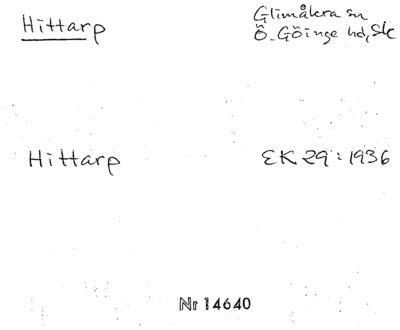 Hittarp
Glimåkra sn
Ö. Göinge hd, Sk
Hittarp
EK 29 : 1936
Nr 14640